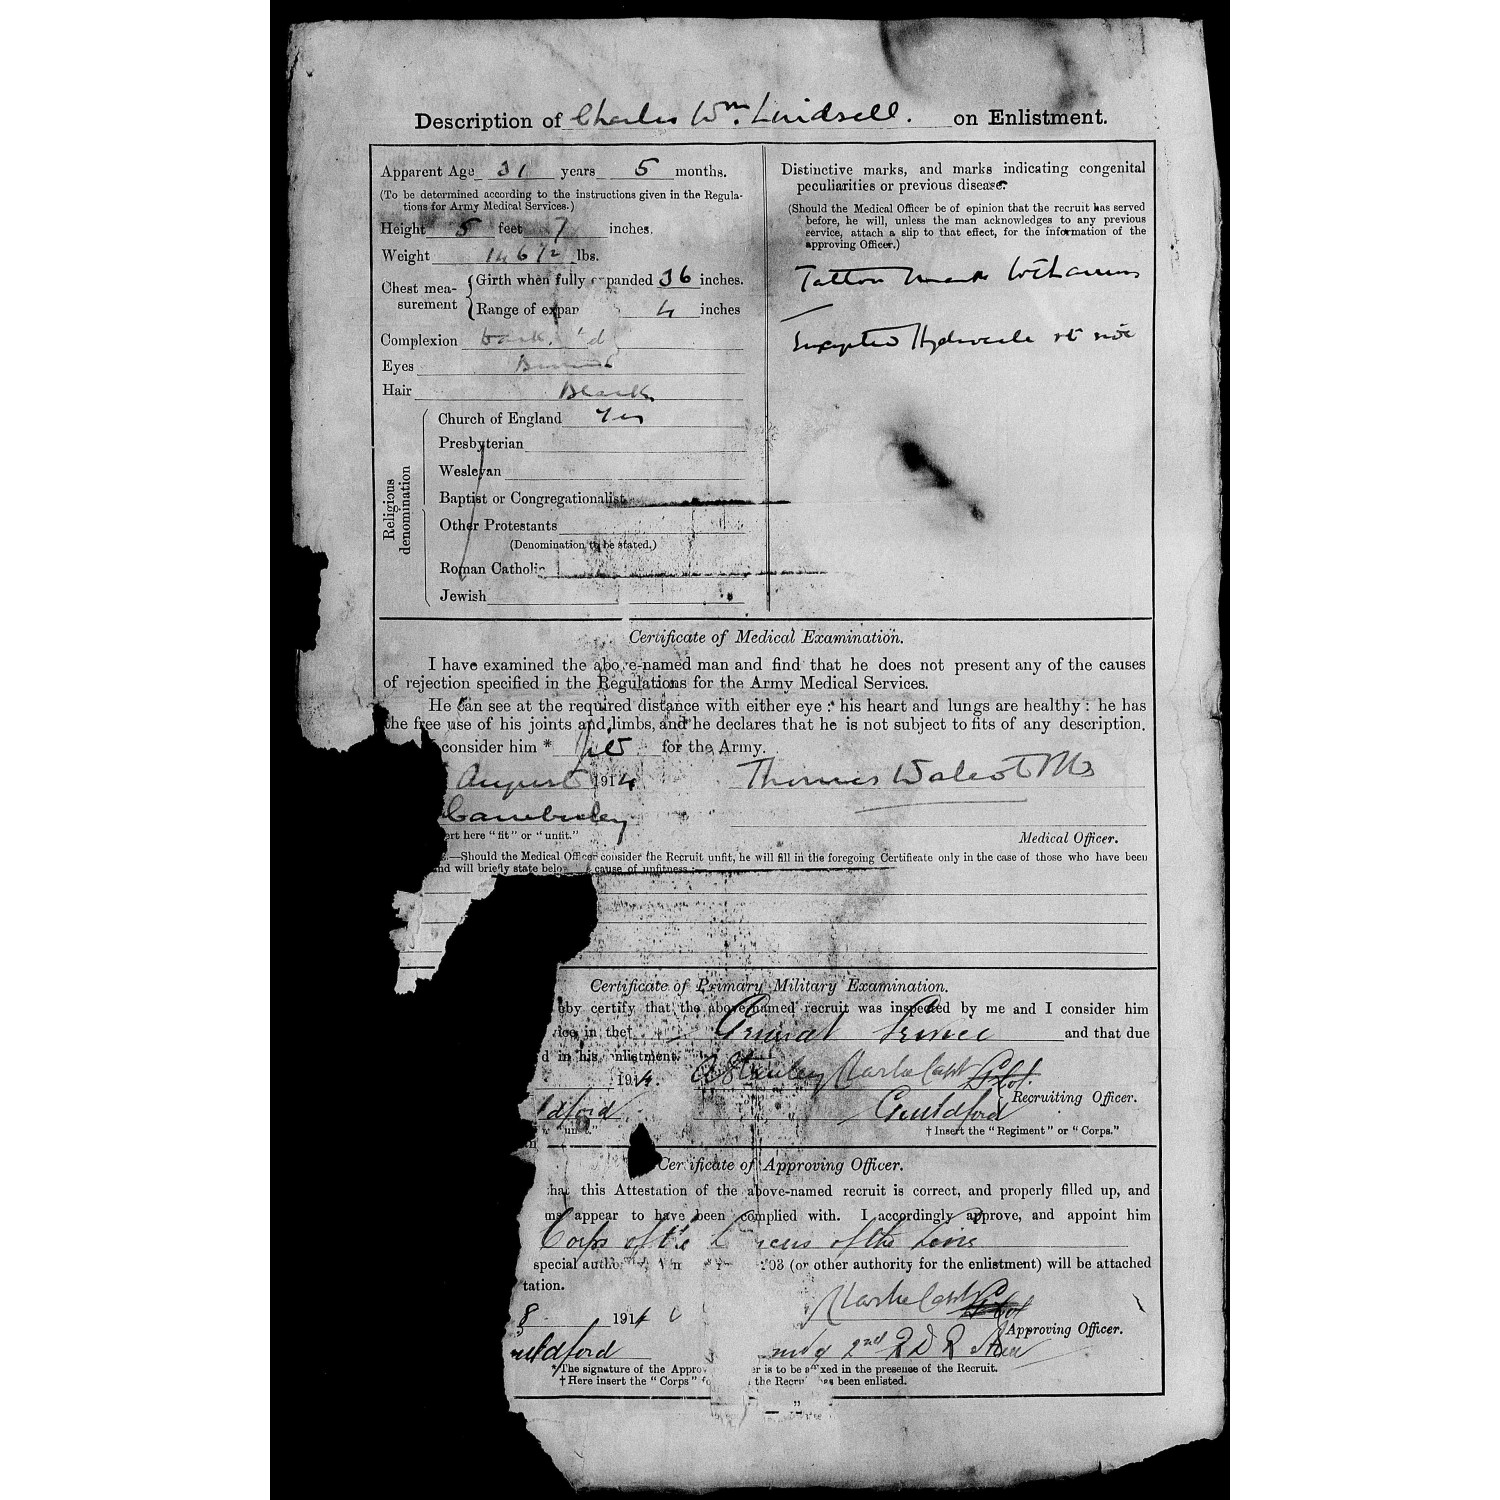 Description of Charles Wm. Lindsell. on Enlistment.
Apparent Age 31 years 5 months.
(To be determined according to the instructions given in the Regula-
tions for Army Medical Services.)
Height 5 feet 7 inches.
Weight 146 1/2 lbs.
Chest mea-
surement
Girth when fully expanded 36 inches.
Range of expan 4 inches
Complexion
Eyes Brown
Hair Black
Religious
denomination
Church of England Yes
Presbyterian
Wesleyan
Baptist or Congregationalist
Other Protestants
(Denomination to be stated.)
Roman Catholic
Jewish
Distinctive marks, and marks indicating congenital
peculiarities or previous disease.
(Should the Medical Officer be of opinion that the recruit has served
before, he will, unless the man acknowledges to any previous
service, attach a slip to that effect, for the information of the
approving Officer.)
Tattoo marks both arms
Hydrocele
Certificate of Medical Examination.
I have examined the above-named man and find that he does not present any of the causes
of rejection specified in the Regulations for the Army Medical Services.
He can see at the required distance with either eye : his heart and lungs are healthy : he has
the free use of his joints and limbs, and he declares that he is not subject to fits of any description.
consider him * fit for the Army.
August 1914 Thomas Walcot
Camberley
ert here "fit" or "unfit."
Medical Officer.
.—Should the Medical Officer consider the Recruit unfit, he will fill in the foregoing Certificate only in the case of those who have been
nd will briefly state below cause of unfitness :—
Certificate of Primary Military Examination.
eby certify that the above-named recruit was inspected by me and I consider him
ice in the† General Service and that due
d in his enlistment.
1914. Capt
Recruiting Officer.
ldford Guildford
† Insert the "Regiment" or "Corps."
Certificate of Approving Officer.
hat this Attestation of the above-named recruit is correct, and properly filled up, and
ms appear to have been complied with. I accordingly approve, and appoint him
Corps of the Lancers of the Line
special autho 03 (or other authority for the enlistment) will be attached
tation.
8 1914 Capt
Approving Officer.
uildford 2nd R D R Area
* The signature of the Approv er is to be affixed in the presence of the Recruit.
† Here insert the "Corps" fo the Recru has been enlisted.